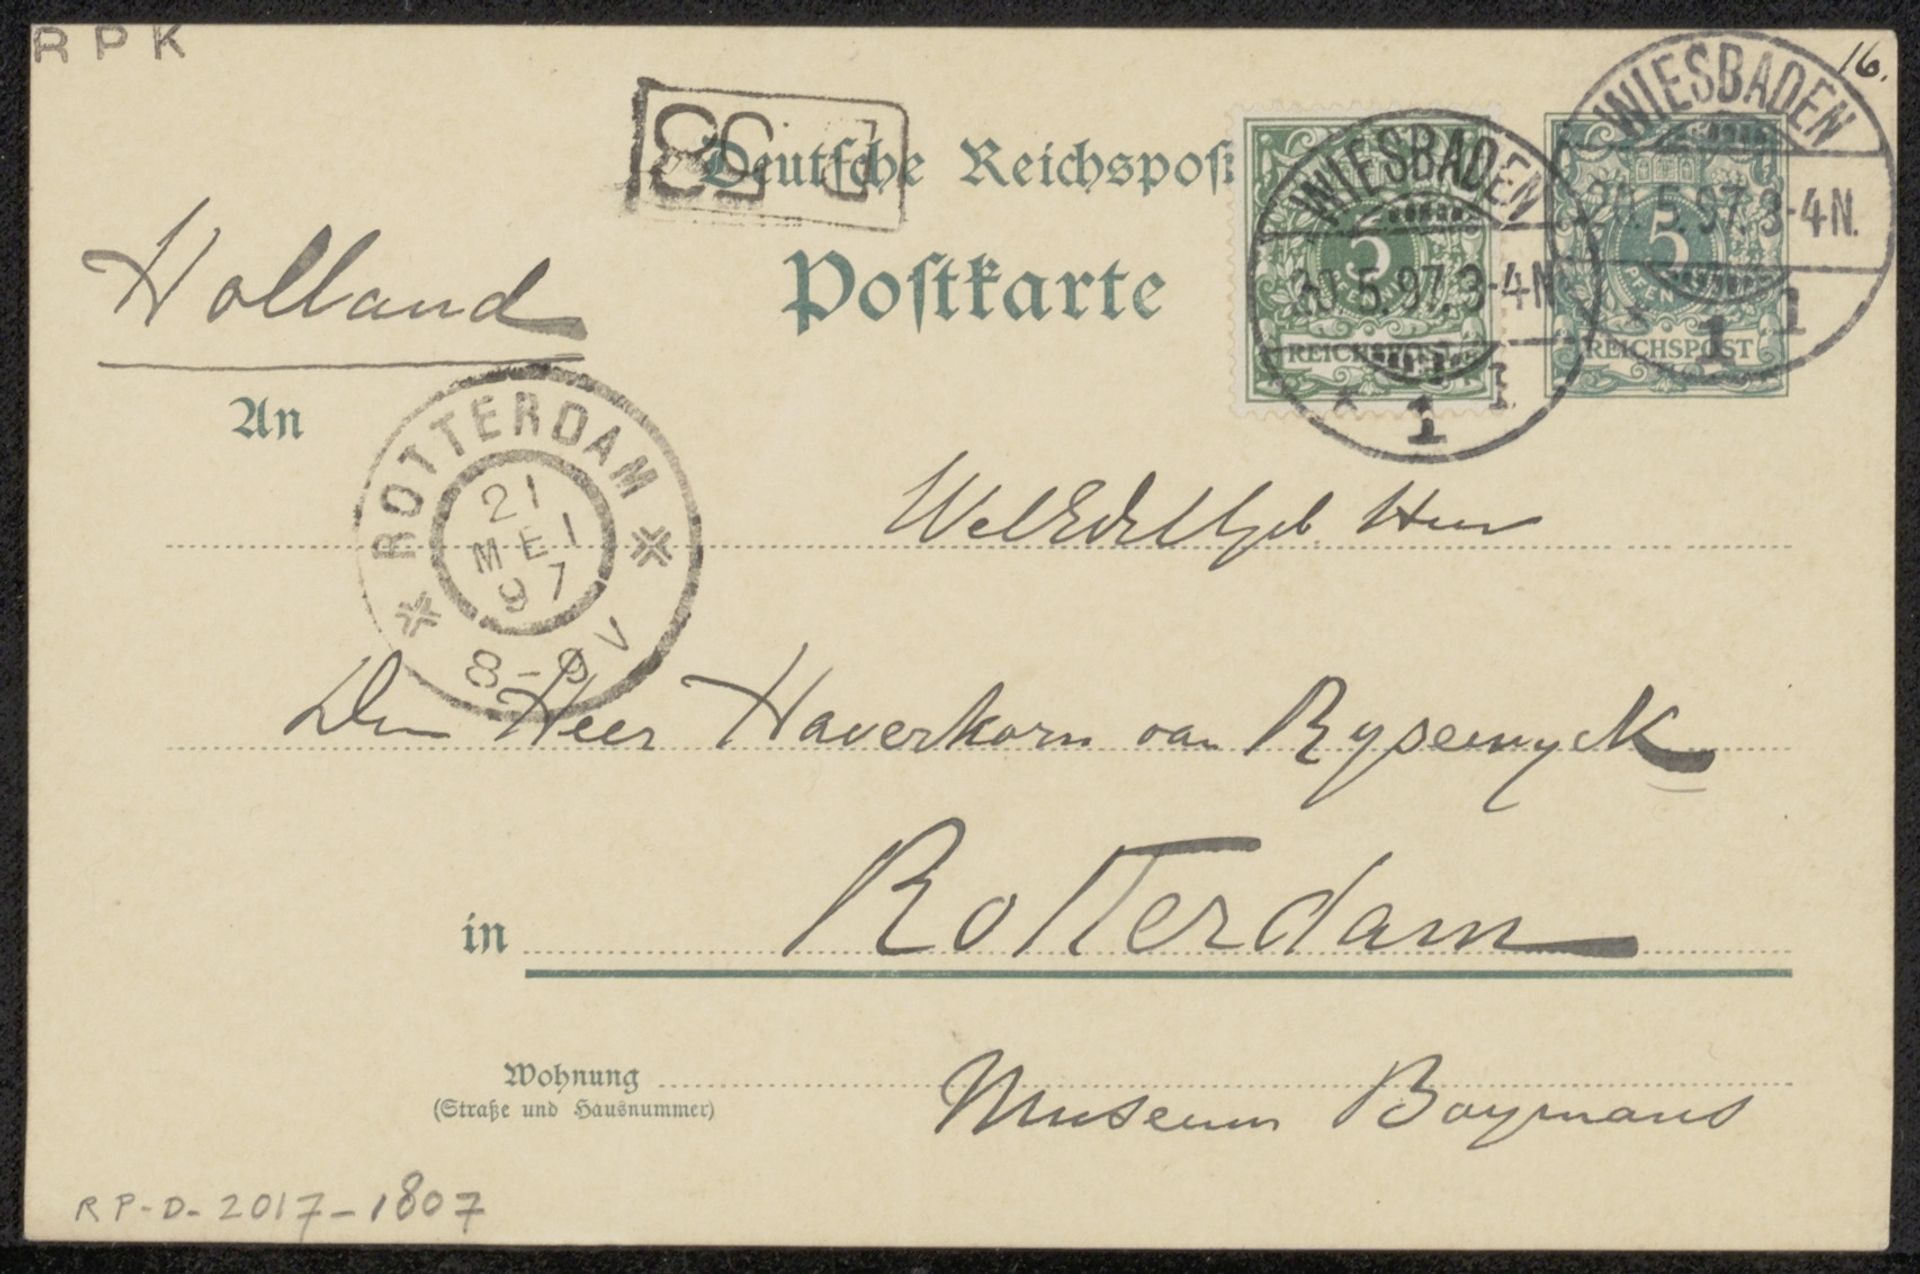 RPK
16.
Deutsche Reichspost
Postkarte
WIESBADEN
20.5.97.3-4N.
1
5
PFENNIG
REICHSPOST
WIESBADEN
20.5.97.3-4N.
1
5
PFENNIG
REICHSPOST
Holland
An
ROTTERDAM
21
MEI
97
8-9V
WelEdelGeb. Heer
Den Heer Haverkorn van Rysewyck
in Rotterdam
Wohnung Museum Boymans
(Straße und Hausnummer)
RP-D-2017-1807